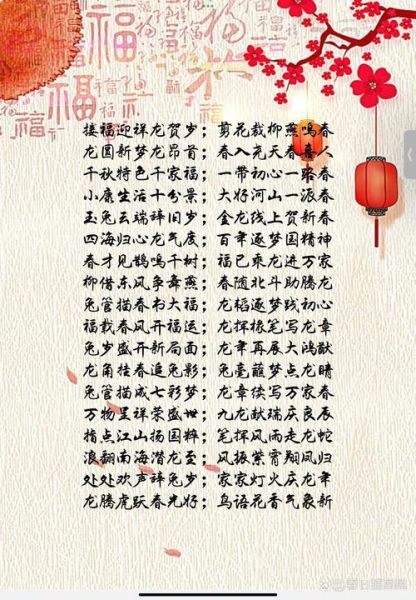 接福迎祥龙贺岁；剪花裁柳燕鸣春
龙因新梦龙昂首；春入尧天春喜人
千秋特色千家福；一带初心一路春
小康生活十分景；大好河山一派春
玉兔云端辞旧岁；金龙线上贺新春
四海归心龙气度；百年逐梦国精神
春才见鹊鸣千树；福已乘龙进万家
柳借东风争舞燕；春随北斗助腾龙
兔管描春书大福；龙韬逐梦践初心
福载春风开福运；龙挥椽笔写龙章
兔岁盛开新局面；龙年再展大鸿猷
龙角挂春追兔影；兔毫蘸梦点龙睛
兔管描成七彩梦；龙章续写万家春
万物呈祥荣盛世；九龙献瑞庆良辰
指点江山扬国粹；笔挥风雨走龙蛇
浪翻南海潜龙至；风振紫霄翔凤归
处处欢声辞兔岁；家家灯火庆龙年
龙腾虎跃春光好；鸟语花香气象新